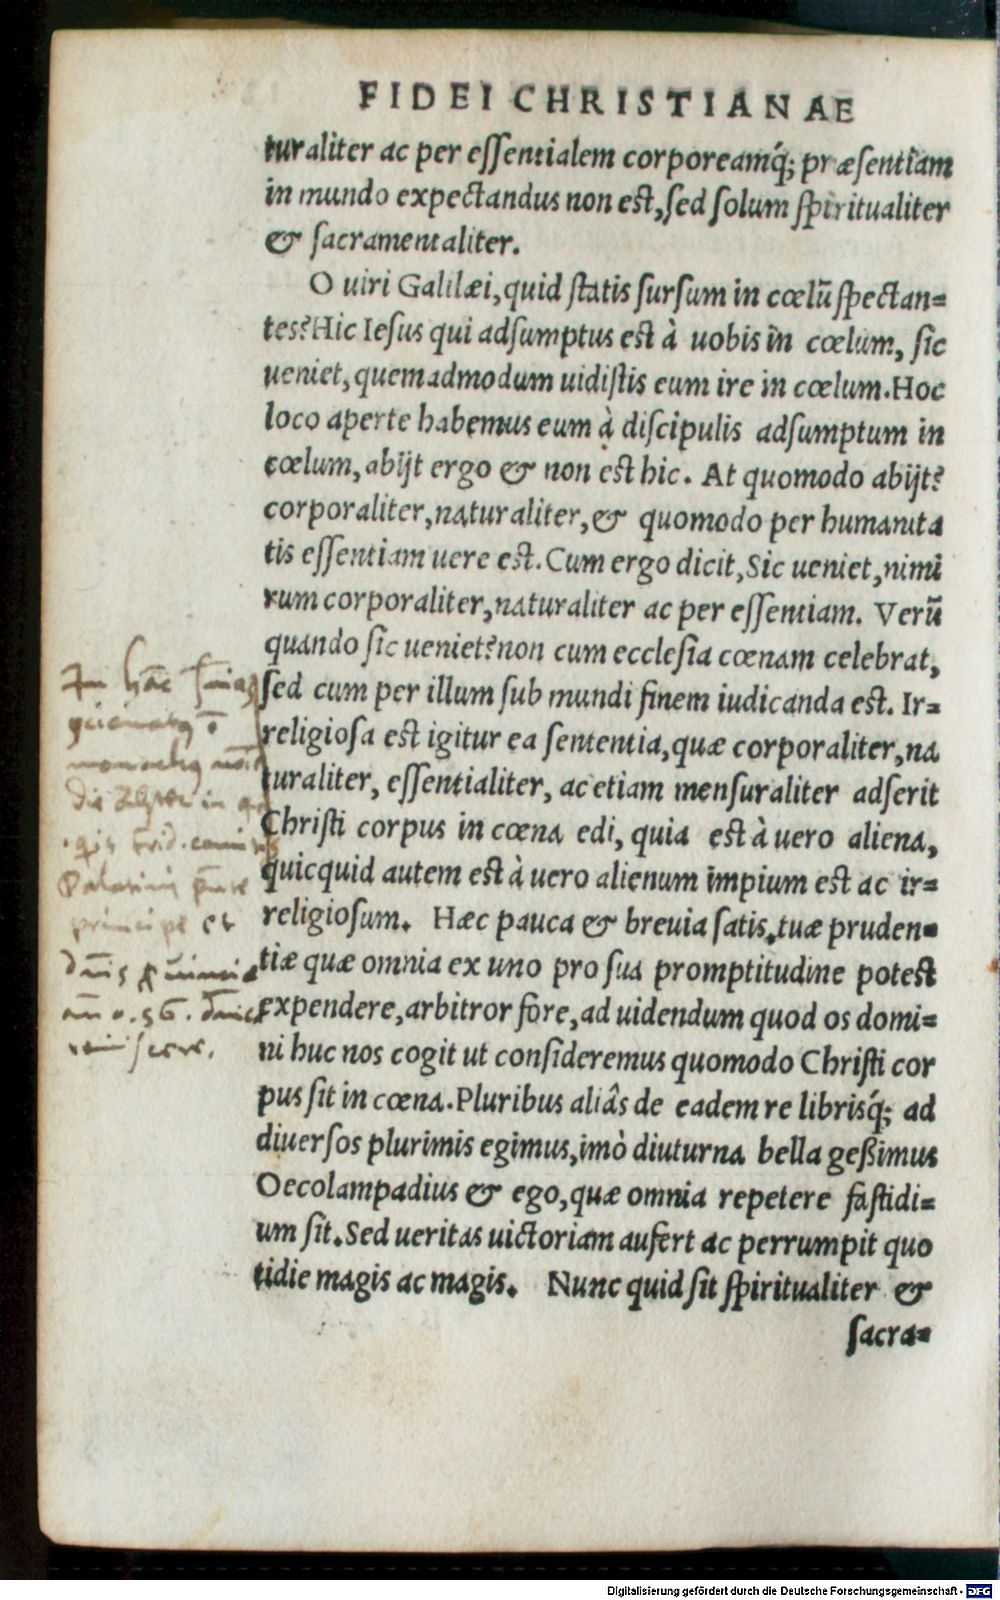 FIDEI CHRISTIANAE
turaliter ac per essentialem corpoream´q; præsentiam
in mundo expectandus non est, sed solum spiritualiter
& sacramentaliter.
O uiri Galilæi, quid statis sursum in cœlũ spectan=
tes? Hic Iesus qui adsumptus est à uobis in cœlum, sic
ueniet, quemadmodum uidistis eum ire in cœlum. Hoc
loco aperte habemus eum à discipulis adsumptum in
cœlum, abijt ergo & non est hic. At quomodo abijt?
corporaliter, naturaliter, & quomodo per humanita
tis essentiam uere est. Cum ergo dicit, Sic ueniet, nimi
rum corporaliter, naturaliter ac per essentiam. Verũ
quando sic ueniet? non cum ecclesia cœnam celebrat,
sed cum per illum sub mundi finem iudicanda est. Ir=
religiosa est igitur ea sententia, quæ corporaliter, na
turaliter, essentialiter, ac etiam mensuraliter adserit
Christi corpus in cœna edi, quia est à uero aliena,
quicquid autem est à uero alienum impium est ac ir=
religiosum. Hæc pauca & breuia satis, tuæ pruden=
tiæ quæ omnia ex uno pro sua promptitudine potest
expendere, arbitror fore, ad uidendum quod os domi=
ni huc nos cogit ut consideremus quomodo Christi cor
pus sit in cœna. Pluribus aliâs de eadem re libris´q; ad
diuersos plurimis egimus, imò diuturna bella geßimus
Oecolampadius & ego, quæ omnia repetere fastidi=
um sit. Sed ueritas uictoriam aufert ac perrumpit quo
tidie magis ac magis. Nunc quid sit spiritualiter &
sacra=
principe et
Digitalisierung gefördert durch die Deutsche Forschungsgemeinschaft - DFG